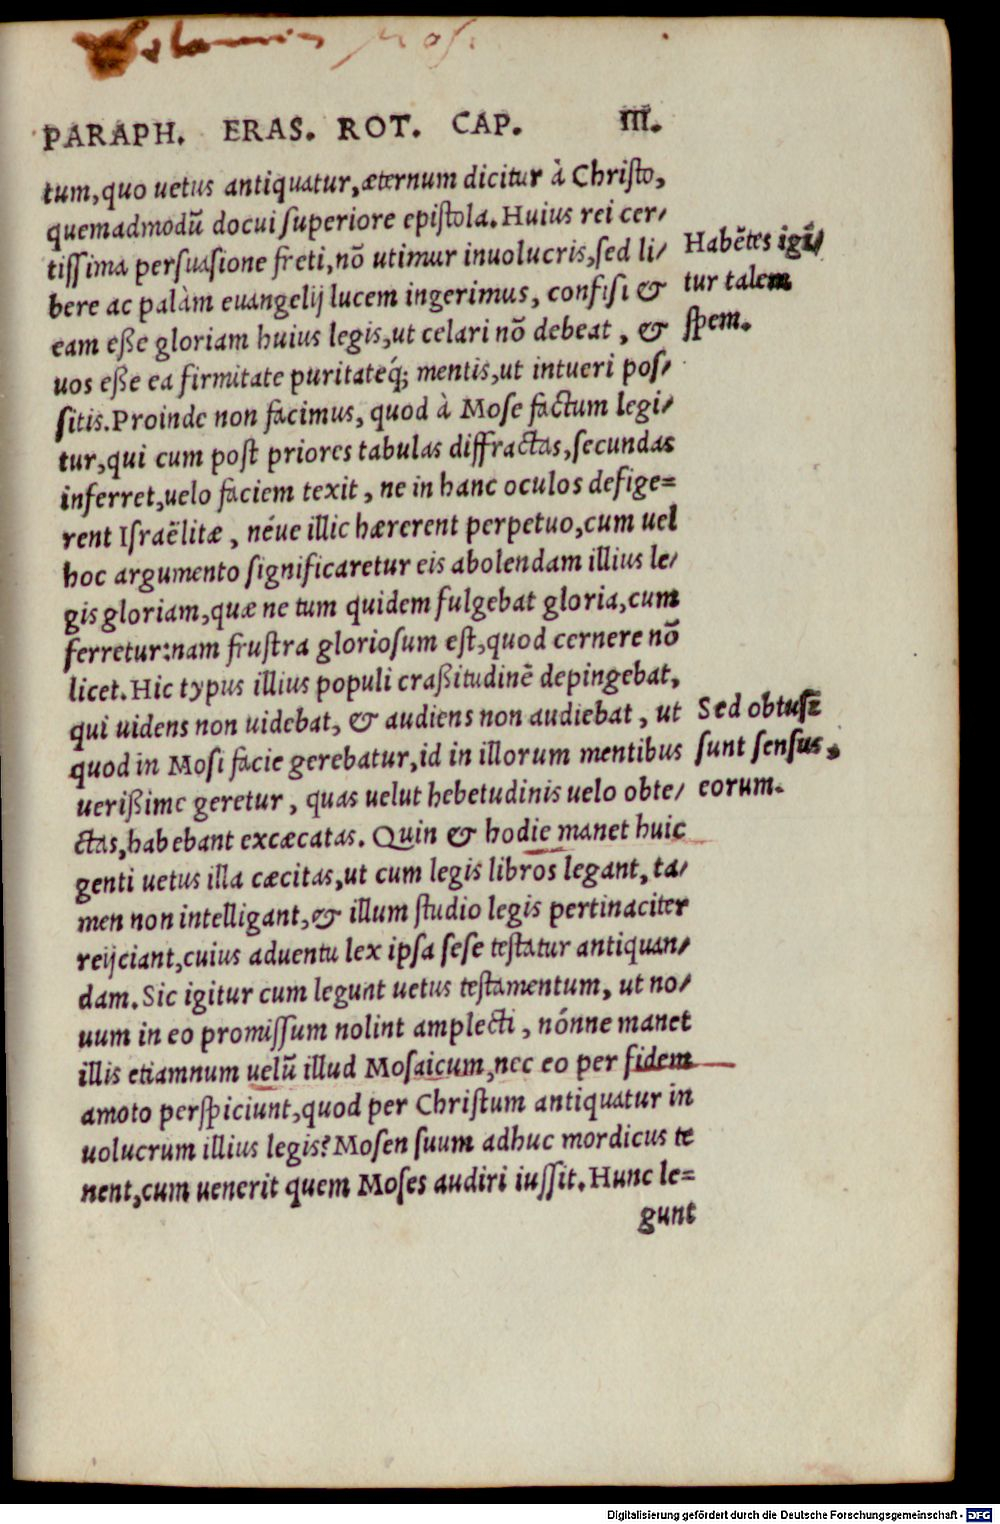 Velamen Mosi
PARAPH. ERAS. ROT. CAP. III.
tum, quo uetus antiquatur, æternum dicitur à Christo,
quemadmodū docui superiore epistola. Huius rei cer/
tissima persuasione freti, nō utimur inuolucris, sed li/
bere ac palàm euangelij lucem ingerimus, confisi &
eam eße gloriam huius legis, ut celari nō debeat, &
uos eße ea firmitate puritateq́; mentis, ut intueri pos/
sitis. Proinde non facimus, quod à Mose factum legi/
tur, qui cum post priores tabulas diffractas, secundas
inferret, uelo faciem texit, ne in hanc oculos defige=
rent Israëlitæ, néue illic hærerent perpetuo, cum uel
hoc argumento significaretur eis abolendam illius le/
gis gloriam, quæ ne tum quidem fulgebat gloria, cum
ferretur: nam frustra gloriosum est, quod cernere nō
licet. Hic typus illius populi craßitudinē depingebat,
qui uidens non uidebat, & audiens non audiebat, ut
quod in Mosi facie gerebatur, id in illorum mentibus
uerißime geretur, quas uelut hebetudinis uelo obte/
ctas, habebant excæcatas. Quin & hodie manet huic
genti uetus illa cæcitas, ut cum legis libros legant, ta/
men non intelligant, & illum studio legis pertinaciter
reijciant, cuius aduentu lex ipsa sese testatur antiquan/
dam. Sic igitur cum legunt uetus testamentum, ut no/
uum in eo promissum nolint amplecti, nónne manet
illis etiamnum uelū illud Mosaicum, nec eo per fidem
amoto perspiciunt, quod per Christum antiquatur in
uolucrum illius legis? Mosen suum adhuc mordicus te
nent, cum uenerit quem Moses audiri iussit. Hunc le=
gunt
Habētes igi/
tur talem
spem.
Sed obtusi
sunt sensus
eorum.
Digitalisierung gefördert durch die Deutsche Forschungsgemeinschaft - DFG